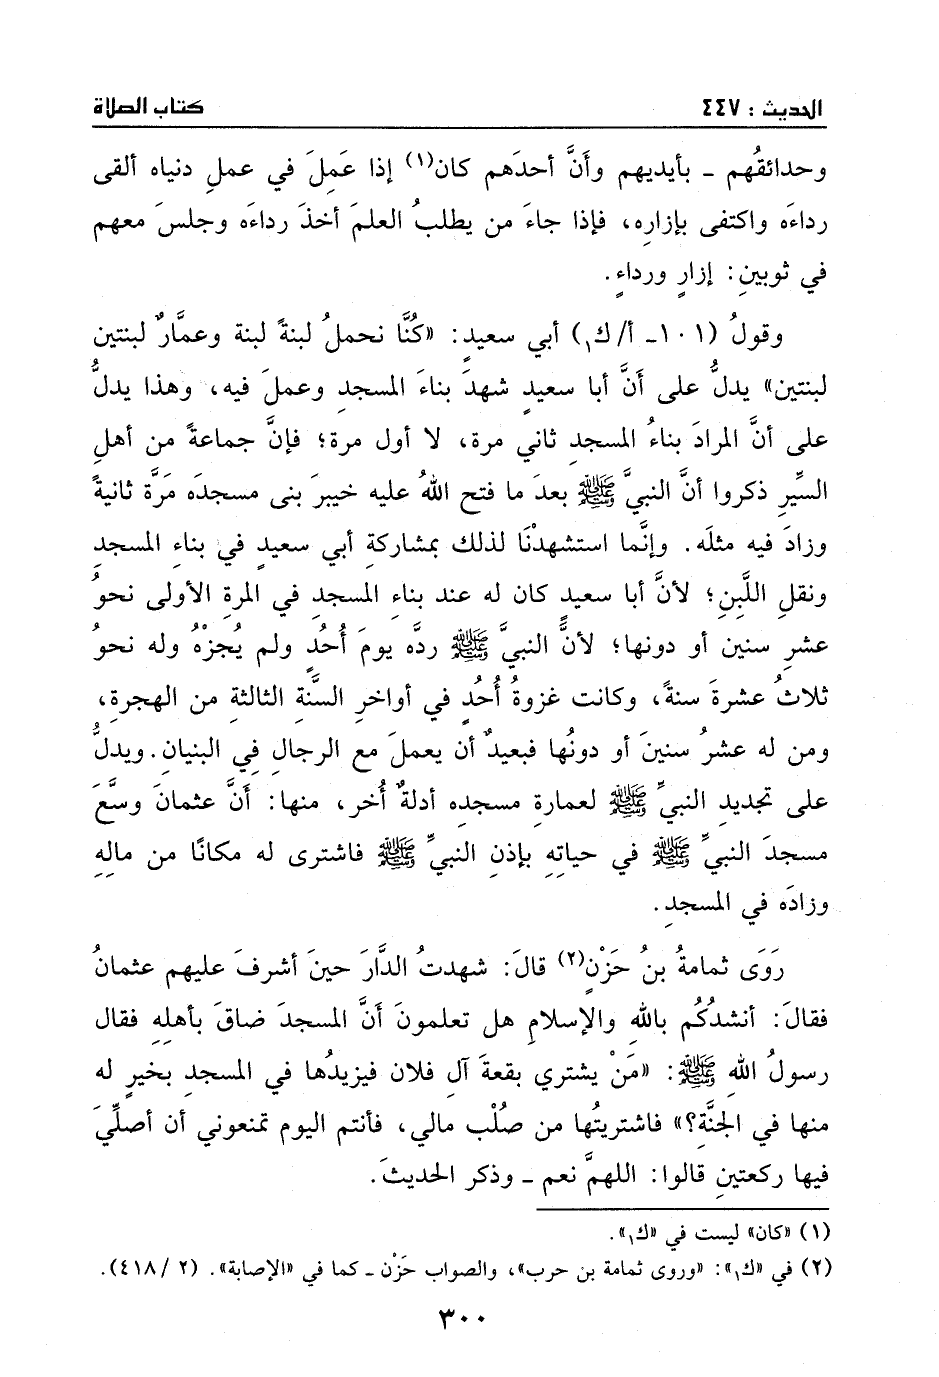 الحديث : ٤٤٧
كتاب الصلاة
وحدائقُهم - بأيديهم وأَنَّ أحدَهم كان(١) إذا عَمِلَ في عملِ دنياه ألقى
رداءَه واكتفى بإزارِه، فإذا جاءَ من يطلبُ العلمَ أخذَ رداءَه وجلسَ معهم
في ثوبينِ: إزارٍ ورداءٍ.
وقولُ (١٠١- أ/ك١) أبي سعيدٍ: «كُنَّا نحملُ لبنةً لبنة وعمَّارٌ لبنتين
لبنتين» يدلُّ على أَنَّ أبا سعيدٍ شهدَ بناءَ المسجدِ وعملَ فيه، وهذا يدلُّ
على أنَّ المرادَ بناءُ المسجدِ ثاني مرة، لا أول مرة؛ فإنَّ جماعةً من أهلِ
السِّيرِ ذكروا أنَّ النبيَّ ﷺ بعدَ ما فتح اللهُ عليه خيبرَ بنى مسجدَه مَرَّة ثانيةً
وزادَ فيه مثلَه. وإنَّما استشهدْنَا لذلك بمشاركةِ أبي سعيدٍ في بناءِ المسجدِ
ونقلِ اللَّبِنِ؛ لأنَّ أبا سعيدٍ كان له عند بناءِ المسجدِ في المرةِ الأولى نحوُ
عشرِ سنين أو دونها؛ لأنَّ النبيَّ ﷺ ردَّه يومَ أُحُدٍ ولم يُجزْهُ وله نحوُ
ثلاثُ عشرةَ سنةً، وكانت غزوةُ أُحُدٍ في أواخرِ السَّنةِ الثالثة من الهجرةِ،
ومن له عشرُ سنينَ أو دونُها فبعيدٌ أن يعملَ مع الرجالِ في البنيانِ. ويدلُّ
على تجديدِ النبيِّ ﷺ لعمارةِ مسجدِه أدلةٌ أُخر، منها: أَنَّ عثمانَ وسَّعَ
مسجدَ النبيِّ ﷺ في حياتِهِ بإذنِ النبيِّ ﷺ فاشترى له مكانًا من مالِهِ
وزادَه في المسجدِ.
رَوَى ثمامةُ بنُ حَزْنٍ(٢) قالَ: شهدتُ الدَّارَ حينَ أشرفَ عليهم عثمانُ
فقالَ: أنشدُكُم باللهِ والإسلامِ هل تعلمونَ أَنَّ المسجدَ ضاقَ بأهلِهِ فقال
رسولُ اللهِ ﷺ: «مَنْ يشتري بقعةَ آلِ فلان فيزيدُها في المسجدِ بخيرٍ له
منها في الجنَّةِ؟» فاشتريتُها من صُلْب مالي، فأنتم اليوم تمنعوني أن أصلِّيَ
فيها ركعتينِ قالوا: اللهمَّ نعم - وذكر الحديثَ.
(١) «كان» ليست في «ك١».
(٢) في «ك١»: «وروى ثمامة بن حرب»، والصواب حَزْن - كما في «الإصابة». (٢/ ٤١٨).
٣٠٠